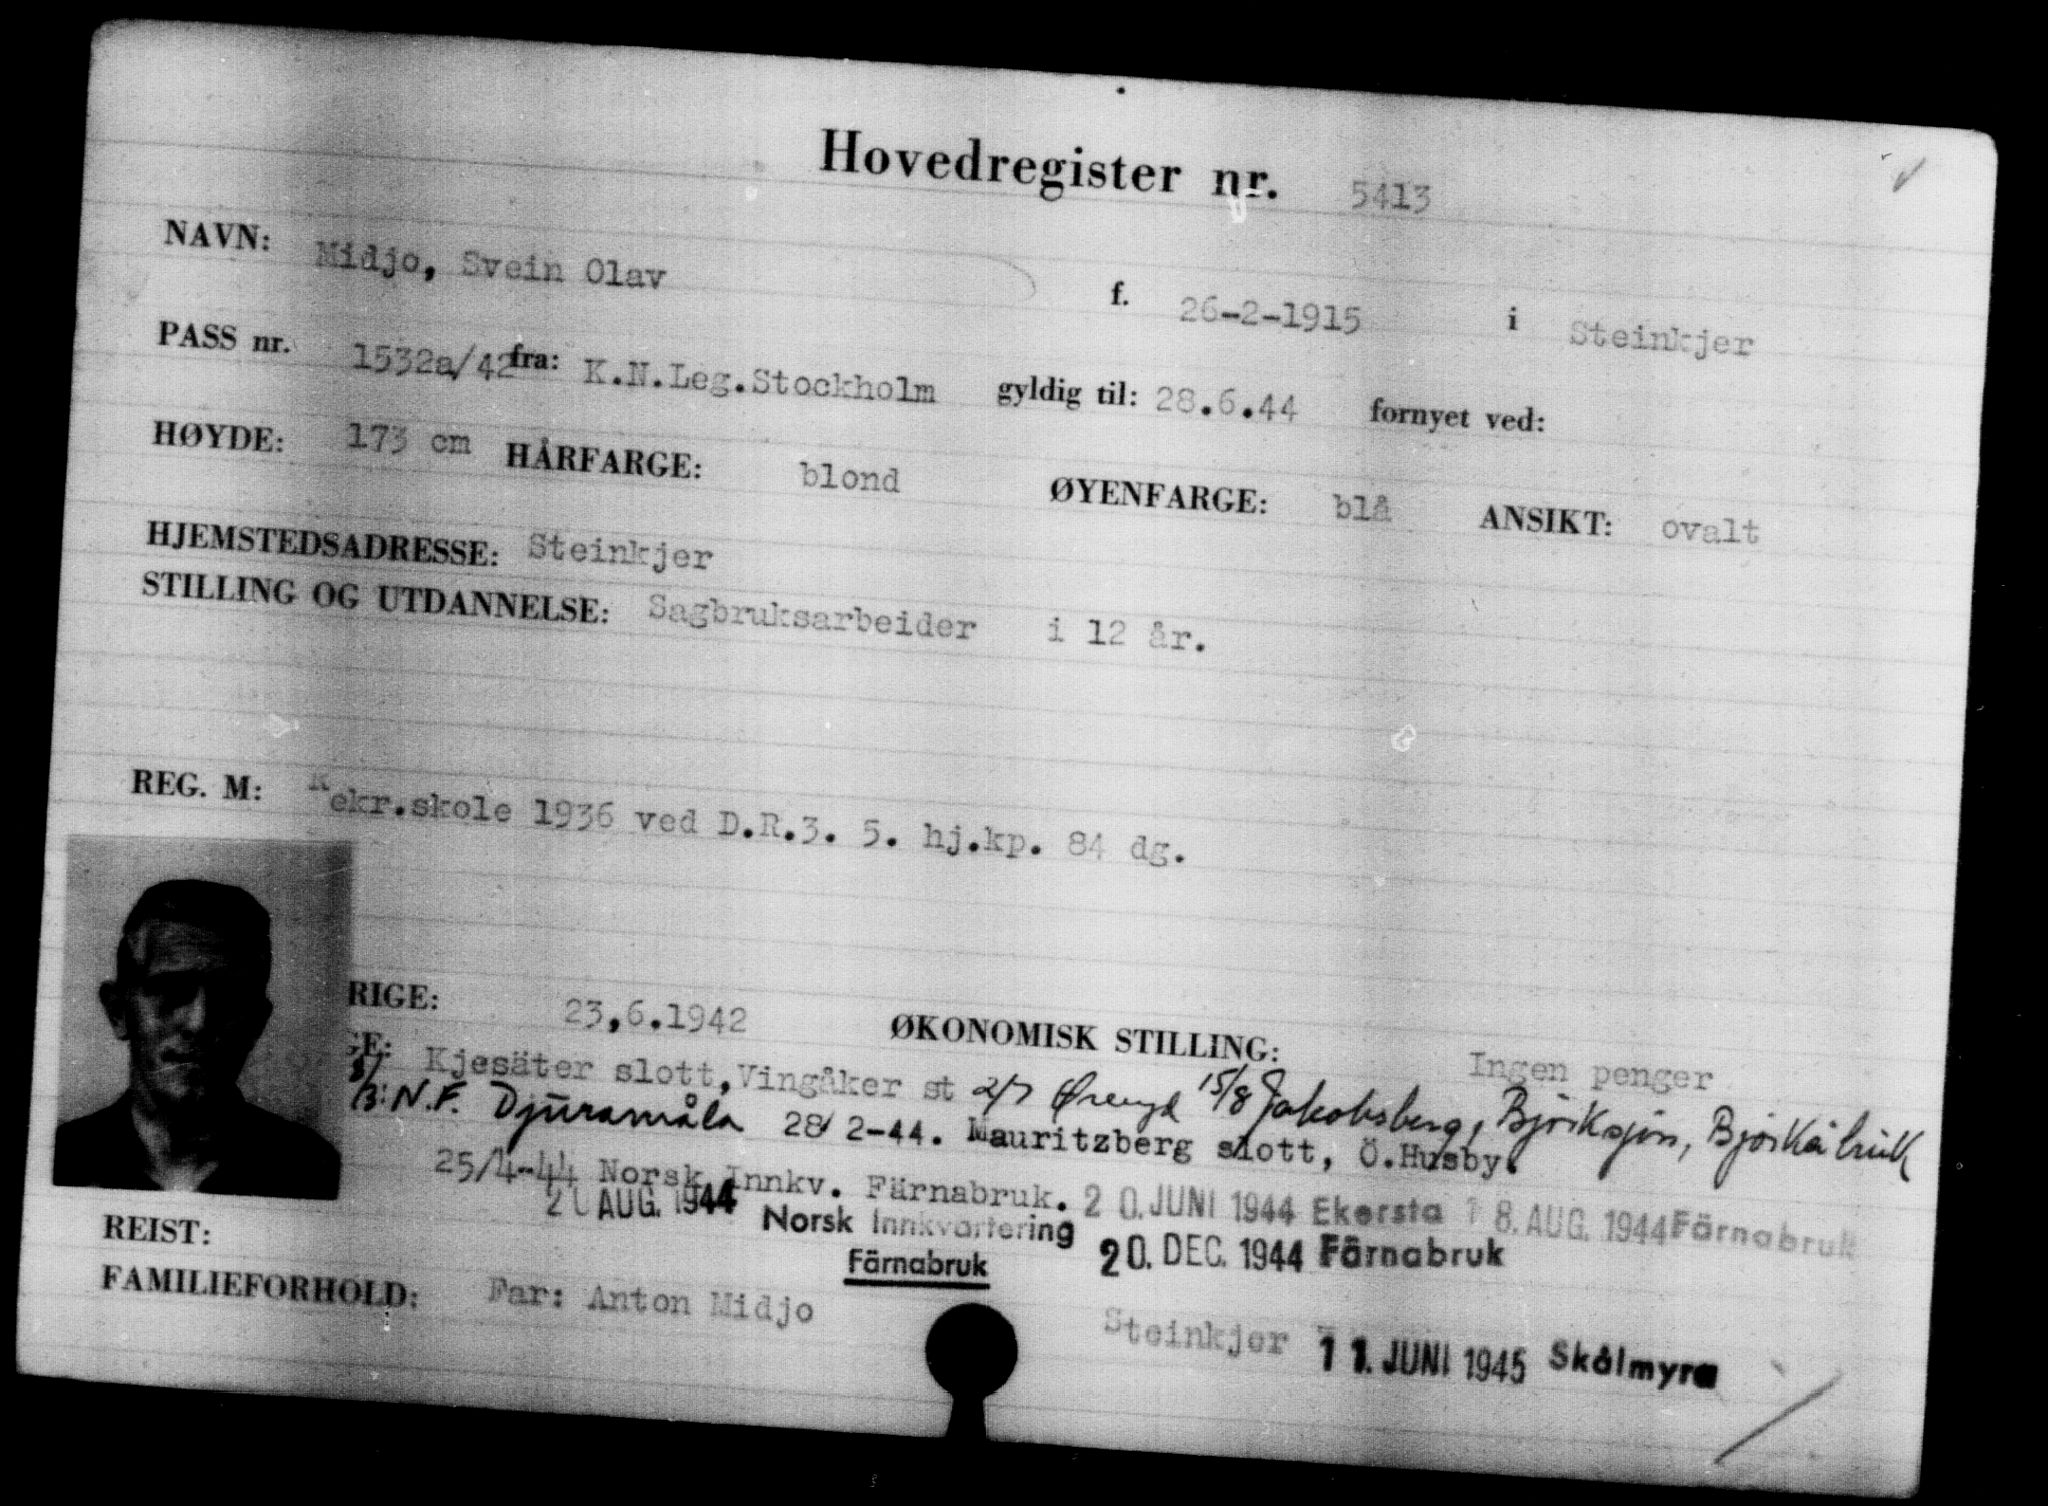 Hovedregister nr. 5413
NAVN: Midjo, Svein Olav f. 26-2-1915 i Steinkjer
PASS nr. 1532a/42 fra: K.N.Leg.Stockholm gyldig til: 28.6.44 fornyet ved:
HØYDE: 173 cm HÅRFARGE: blond ØYENFARGE: blå ANSIKT: ovalt
HJEMSTEDSADRESSE: Steinkjer
STILLING OG UTDANNELSE: Sagbruksarbeider i 12 år.
REG. M: Rekr.skole 1936 ved D.R.3. 5. hj.kp. 84 dg.
RIGE: 23,6.1942 ØKONOMISK STILLING: Ingen penger
GE: Kjesäter slott,Vingåker st 2/7 15/8 Jakobsberg, Björksjön,
B: N.F. Djuramåla 28/2-44. Mauritzberg slott, Ö.Husby.
25/4-44 Norsk Innkv. Färnabruk. 20. JUNI 1944 Ekersta 18. AUG. 1944 Färnabruk
AUG. 1944 Norsk Innkvartering 20. DEC. 1944 Färnabruk
REIST: Färnabruk
FAMILIEFORHOLD: Far: Anton Midjo Steinkjer 11. JUNI 1945 Skålmyra